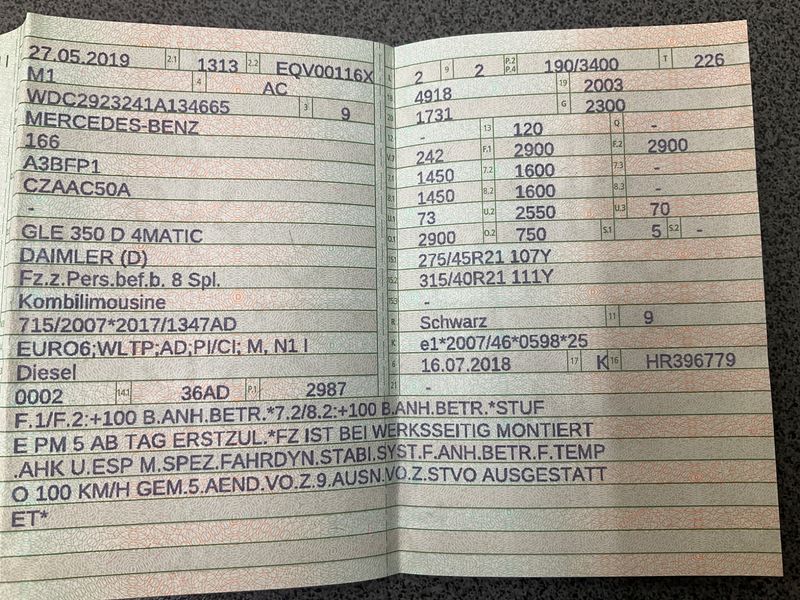 27.05.2019 2.1 1313 2.2 EQV00116X
M1 4 AC
WDC2923241A134665 3 9
MERCEDES-BENZ
166
A3BFP1
CZAAC50A
-
GLE 350 D 4MATIC
DAIMLER (D)
Fz.z.Pers.bef.b. 8 Spl.
Kombilimousine
715/2007*2017/1347AD
EURO6;WLTP;AD;PI/CI; M, N1 I
Diesel
0002 14.1 36AD P.1 2987
2 9 2 P.2 P.4 190/3400 T 226
18 4918 19 2003
20 1731 G 2300
12 - 13 120 Q -
V.7 242 F.1 2900 F.2 2900
7.1 1450 7.2 1600 7.3 -
8.1 1450 8.2 1600 8.3 -
U.1 73 U.2 2550 U.3 70
O.1 2900 O.2 750 S.1 5 S.2 -
15.1 275/45R21 107Y
15.2 315/40R21 111Y
15.3 -
R Schwarz 11 9
K e1*2007/46*0598*25
6 16.07.2018 17 K 16 HR396779
21 -
F.1/F.2:+100 B.ANH.BETR.*7.2/8.2:+100 B.ANH.BETR.*STUF
E PM 5 AB TAG ERSTZUL.*FZ IST BEI WERKSSEITIG MONTIERT
.AHK U.ESP M.SPEZ.FAHRDYN.STABI.SYST.F.ANH.BETR.F.TEMP
O 100 KM/H GEM.5.AEND.VO.Z.9.AUSN.VO.Z.STVO AUSGESTATT
ET*